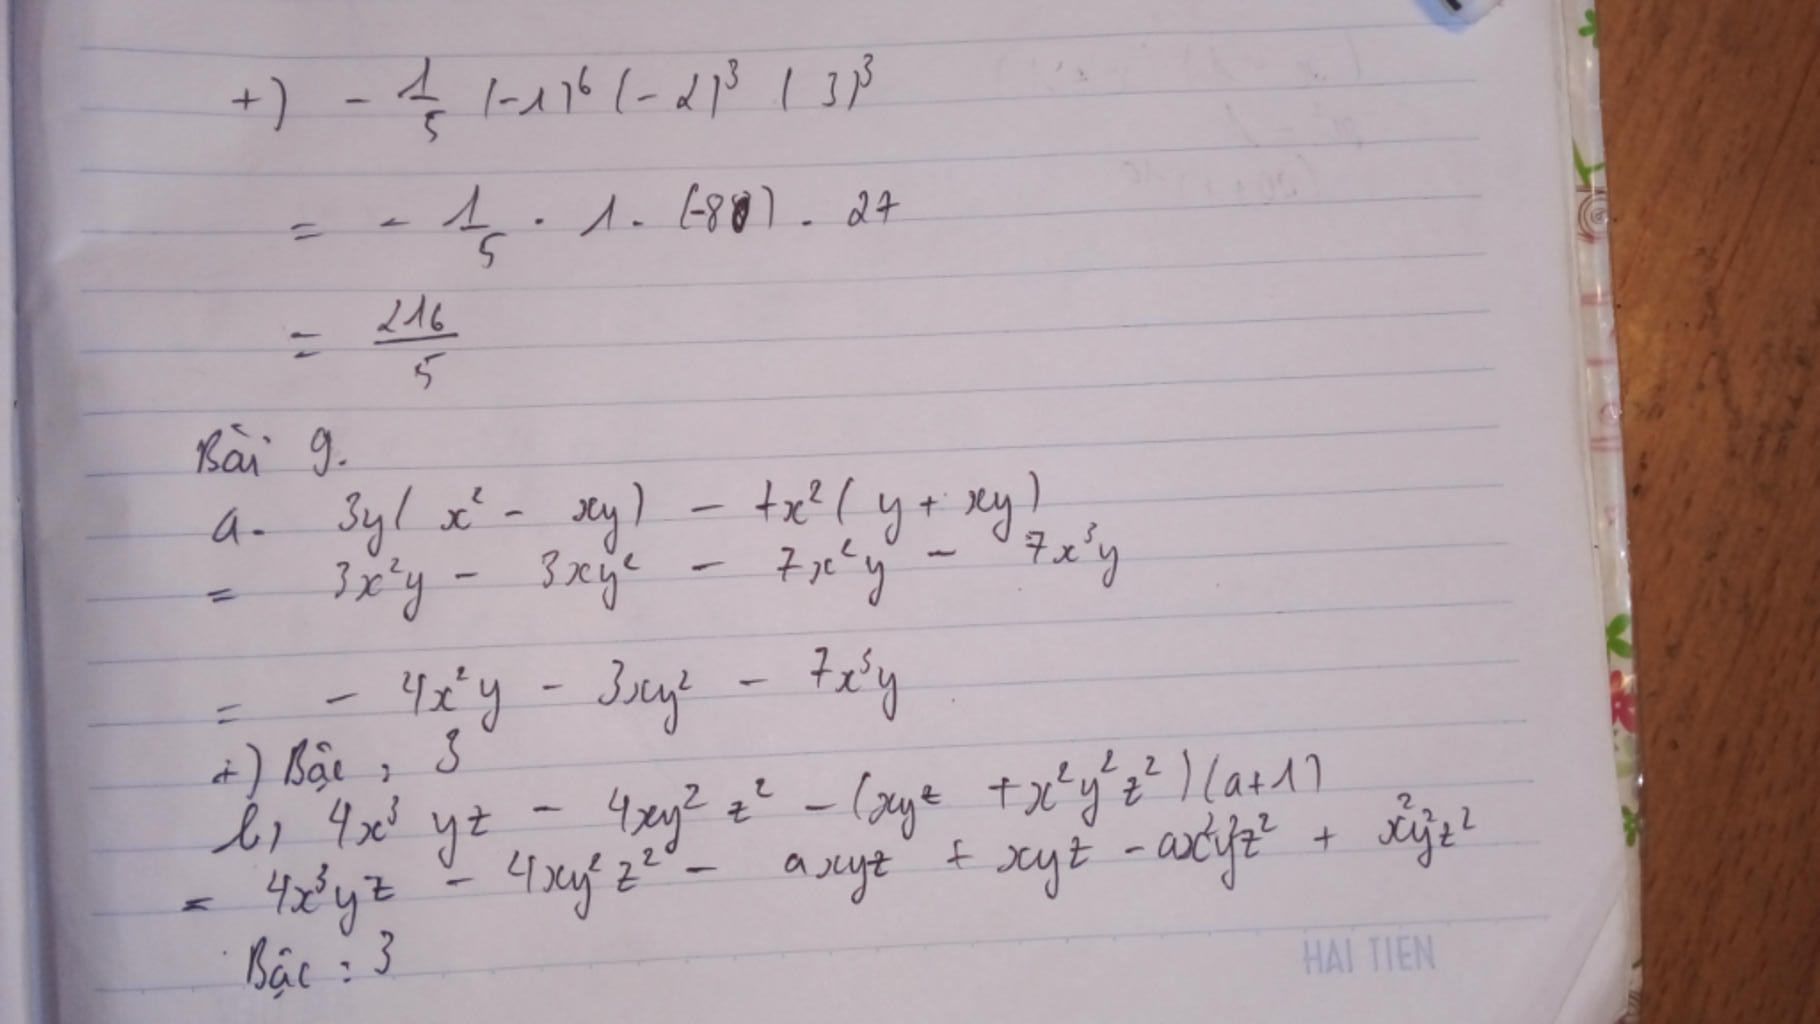 +) - 1/5 (-1)⁶ (-2)³ (3)³
= - 1/5 . 1. (-8) . 27
= 216/5
Bài 9.
a. 3y( x² - xy) - 7x² ( y + xy)
= 3x²y - 3xy² - 7x²y - 7x³y
= - 4x²y - 3xy² - 7x³y
+) Bậc : 3
b, 4x³ yz - 4xy² z² - (xyz + x²y²z²) (a+1)
= 4x³yz - 4xy²z² - axyz + xyz - ax²y²z² + x²y²z²
Bậc : 3
HẢI TIẾN